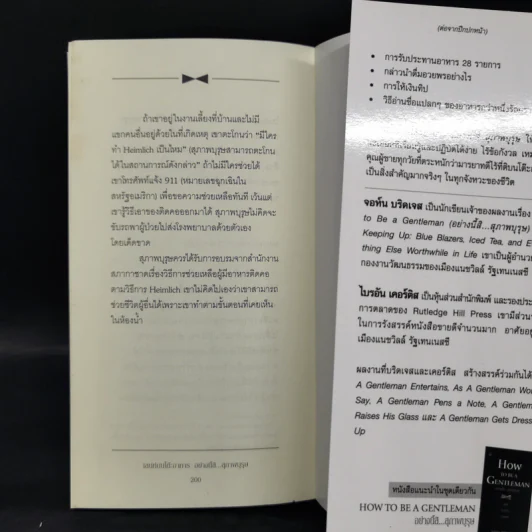 ถ้าเขาอยู่ในงานเลี้ยงที่บ้านและไม่มี
แขกคนอื่นอยู่ด้วยในที่เกิดเหตุ เขาตะโกนว่า "มีใคร
ทำ Heimlich เป็นไหม" (สุภาพบุรุษสามารถตะโกน
ได้ในสถานการณ์ดังกล่าว) ถ้าไม่มีใครช่วยได้
เขาโทรศัพท์แจ้ง 911 (หมายเลขฉุกเฉินใน
สหรัฐอเมริกา) เพื่อขอความช่วยเหลือทันที เว้นแต่
เขารู้วิธีเอาของติดคอออกมาได้ สุภาพบุรุษไม่คิดจะ
ขับรถพาผู้ป่วยไปส่งโรงพยาบาลด้วยตัวเอง
โดยเด็ดขาด
สุภาพบุรุษควรได้รับการอบรมจากสำนักงาน
สภากาชาดเรื่องวิธีการช่วยเหลือผู้มีอาหารติดคอ
ตามวิธีการ Heimlich เขาไม่คิดไปเองว่าเขาสามารถ
ช่วยชีวิตผู้อื่นได้เพราะเขาทำตามขั้นตอนที่เคยเห็น
ในห้องน้ำ
อย่างนี้สิ...สุภาพบุรุษ
200
(ต่อจากปีกปกหน้า)
• การรับประทานอาหาร 28 รายการ
• กล่าวนำดื่มอวยพรอย่างไร
• การให้เงินทิป
• วิธีอ่านชื่อแปลกๆ ของอาหารว่าหนึ่งร้อย
สุภาพบุรุษ
และปฏิบัติได้ง่าย ไร้ข้อกังวล
คุณผู้ชายทุกวัยที่ตระหนักว่ามารยาทดีไร้ที่ติบนโต๊ะ
เป็นสิ่งสำคัญมากจริงๆ ในทุกจังหวะของชีวิต
จอห์น บริดเจส เป็นนักเขียนเจ้าของผลงานเรื่อง
to Be a Gentleman (อย่างนี้สิ...สุภาพบุรุษ)
Keeping Up: Blue Blazers, Iced Tea, and E
thing Else Worthwhile in Life เขาเป็นผู้อำนวย
กองงานวัฒนธรรมของเมืองแนชวิลล์ รัฐเทนเนสซี
ไบรอัน เคอร์ติส เป็นหุ้นส่วนสำนักพิมพ์ และรองประ
การตลาดของ Rutledge Hill Press เขามีส่วน
ในการรังสรรค์หนังสือขายดีจำนวนมาก อาศัยอยู่
เมืองแนชวิลล์ รัฐเทนเนสซี
ผลงานที่บริดเจสและเคอร์ติส สร้างสรรค์ร่วมกันได้
A Gentleman Entertains, As A Gentleman Wo
Say, A Gentleman Pens a Note, A Gentlem
Raises His Glass และ A Gentleman Gets Dress
Up
หนังสือแนะนำในชุดเดียวกัน
HOW TO BE A GENTLEMAN
อย่างนี้สิ...สุภาพบุรุษ
How
TO BE A
GENTLEMAN